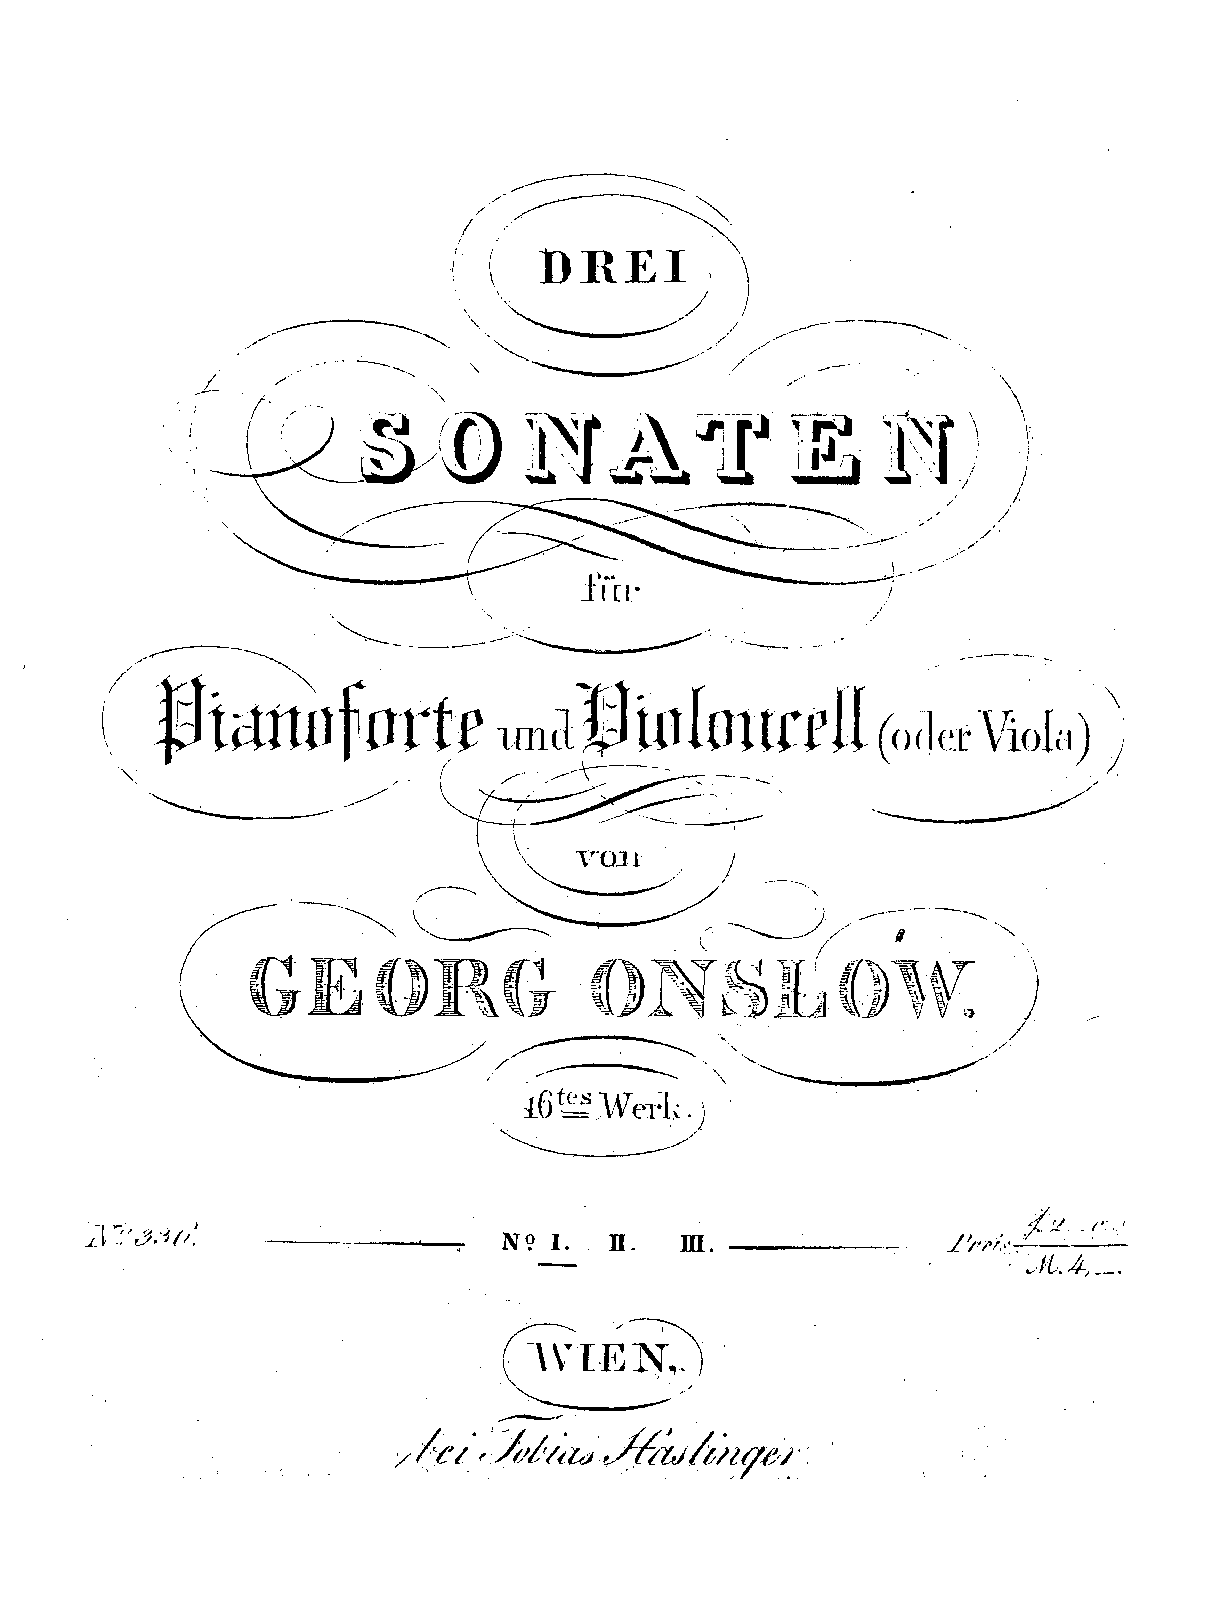 DREI
SONATEN
für
Pianoforte und Violoncell (oder Viola)
von
GEORG ONSLOW.
16tes Werk.
Nº I. II. III.
Preis
M. 4,—.
WIEN,
bei Tobias Haslinger